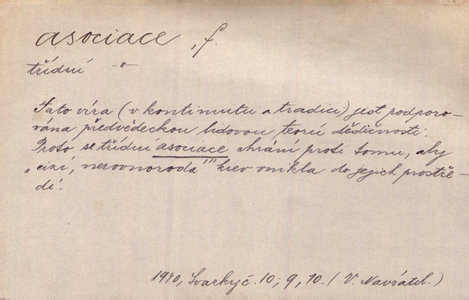 asociace, f.
třídní -"-
Tato víra (v kontinuitu a tradici) jest podporo-
vána předvědeckou lidovou teorií dědičnosti.
Proto se třídní asociace chrání proti tomu, aby
„cizí, nerovnorodá" krev vnikla do jejich prostře-
dí.
1940, č. 10; 9, 10. (V. Navrátil.)